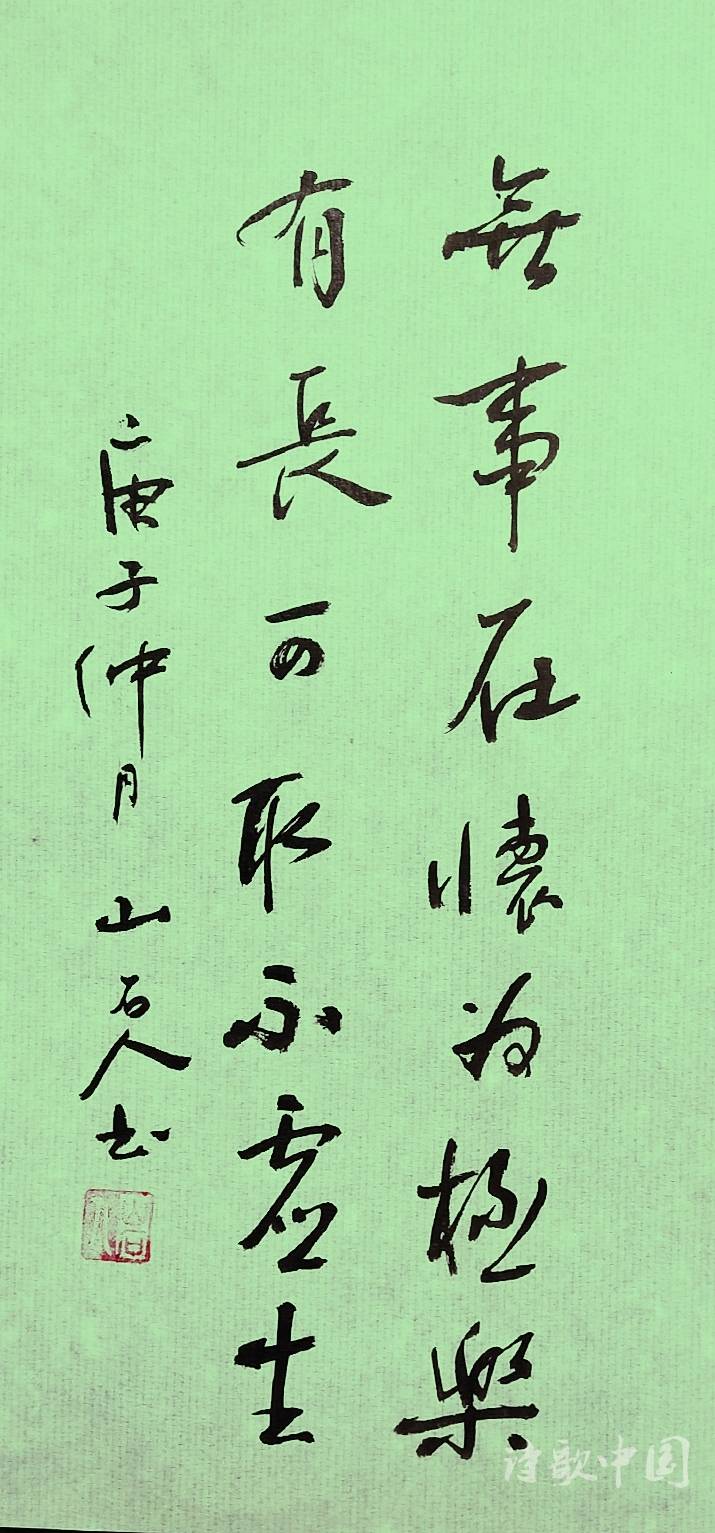 無事在懷為極樂
有長可取不虛生
庚子仲月山石人书
诗歌中国